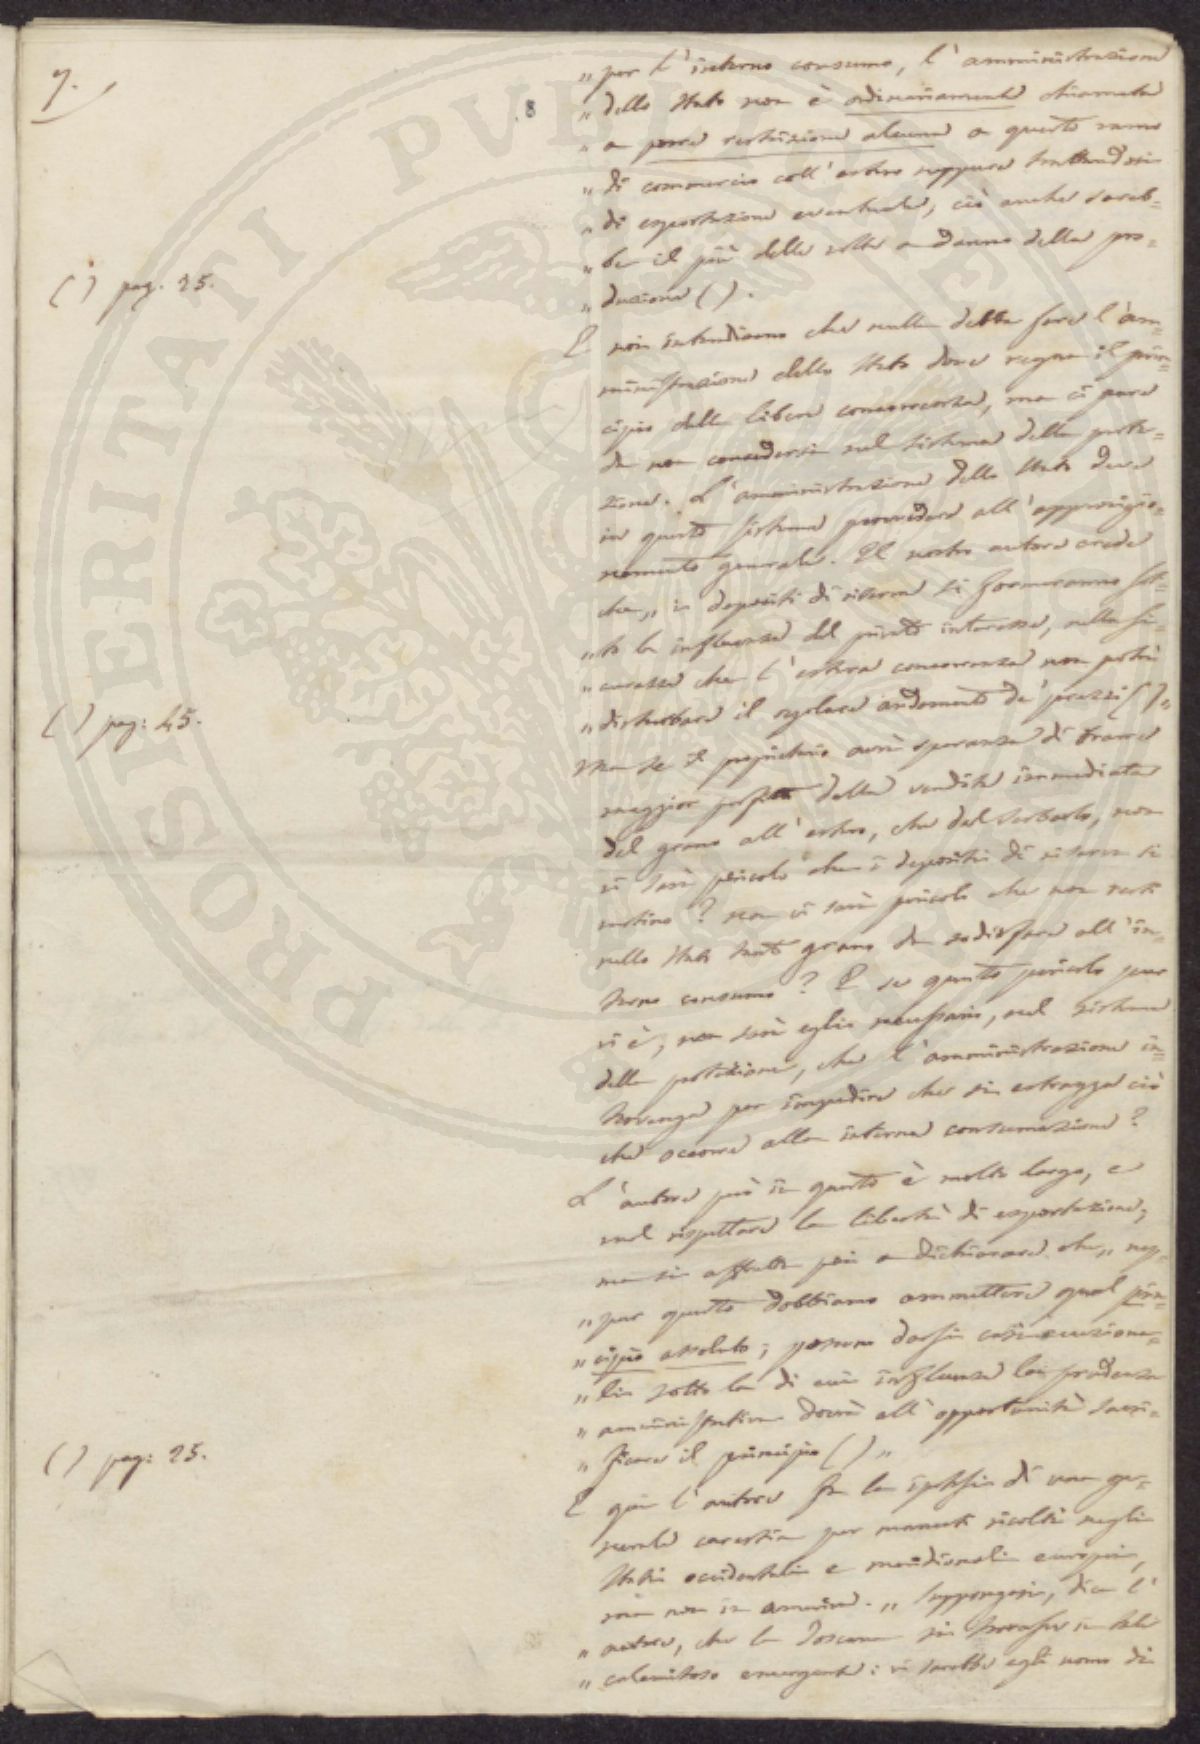 7.
8
„ per l'interno consumo, l'amministrazione
„ dello Stato non è ordinariamente chiamata
„ a porre restrizione alcuna a questo ramo
„ di commercio coll'estero neppure trattandosi
„ di esportazione eventuale, ciò anche sareb-
„ be il più delle volte a danno della pro-
„ duzione ( ).
( ) pag. 25.
E noi intendiamo che nulla debba fare l'am-
ministrazione dello Stato dove regna il prin-
cipio della libera concorrenza, ma ci pare
da non concedersi nel sistema della prote-
zione. L'amministrazione dello Stato deve
in questo sistema provvedere all'approvigio-
namento generale. Il nostro autore crede
che „ i depositi di riserva si formeranno sot-
„ to la influenza del privato interesse, nella si-
„ curezza che l'estera concorrenza non potrà
„ disturbare il regolare andamento de' prezzi ( ) „
( ) pag: 45.
Ma se il proprietario avrà speranza di trarre
maggior profitto dalla vendita immediata
del grano all'estero, che dal serbarlo, non
vi sarà pericolo che i depositi di riserva si
? non vi sarà pericolo che non resti
nello Stato tanto grano da sodisfare all'in-
terno consumo? E se questo pericolo pur
vi è, non sarà egli necessario, nel sistema
della protezione, che l'amministrazione in-
tervenga per impedire che si estragga ciò
che occorre alla interna consumazione?
L'autore però in questo è molto largo, e
nel rispettare la libertà di esportazione,
ma si affretta poi a dichiarare che „ nep-
„ pur questo dobbiamo ammettere qual prin-
„ cipio assoluto; possono darsi casi eccezziona-
„ li sotto la di cui influenza la prudenza
„ amministrativa dovrà all'opportunità sacri-
„ ficare il principio ( ) „
( ) pag: 25.
E qui l'autore fa la ipotesi di una ge-
nerale carestia per mancati ricolti negli
Stati occidentali e meridionali europei,
ma non in America. „ Suppongasi, dice l'
„ autore, che la Toscana si trovasse in tale
„ calamitosa emergenza: vi sarebbe egli uomo di